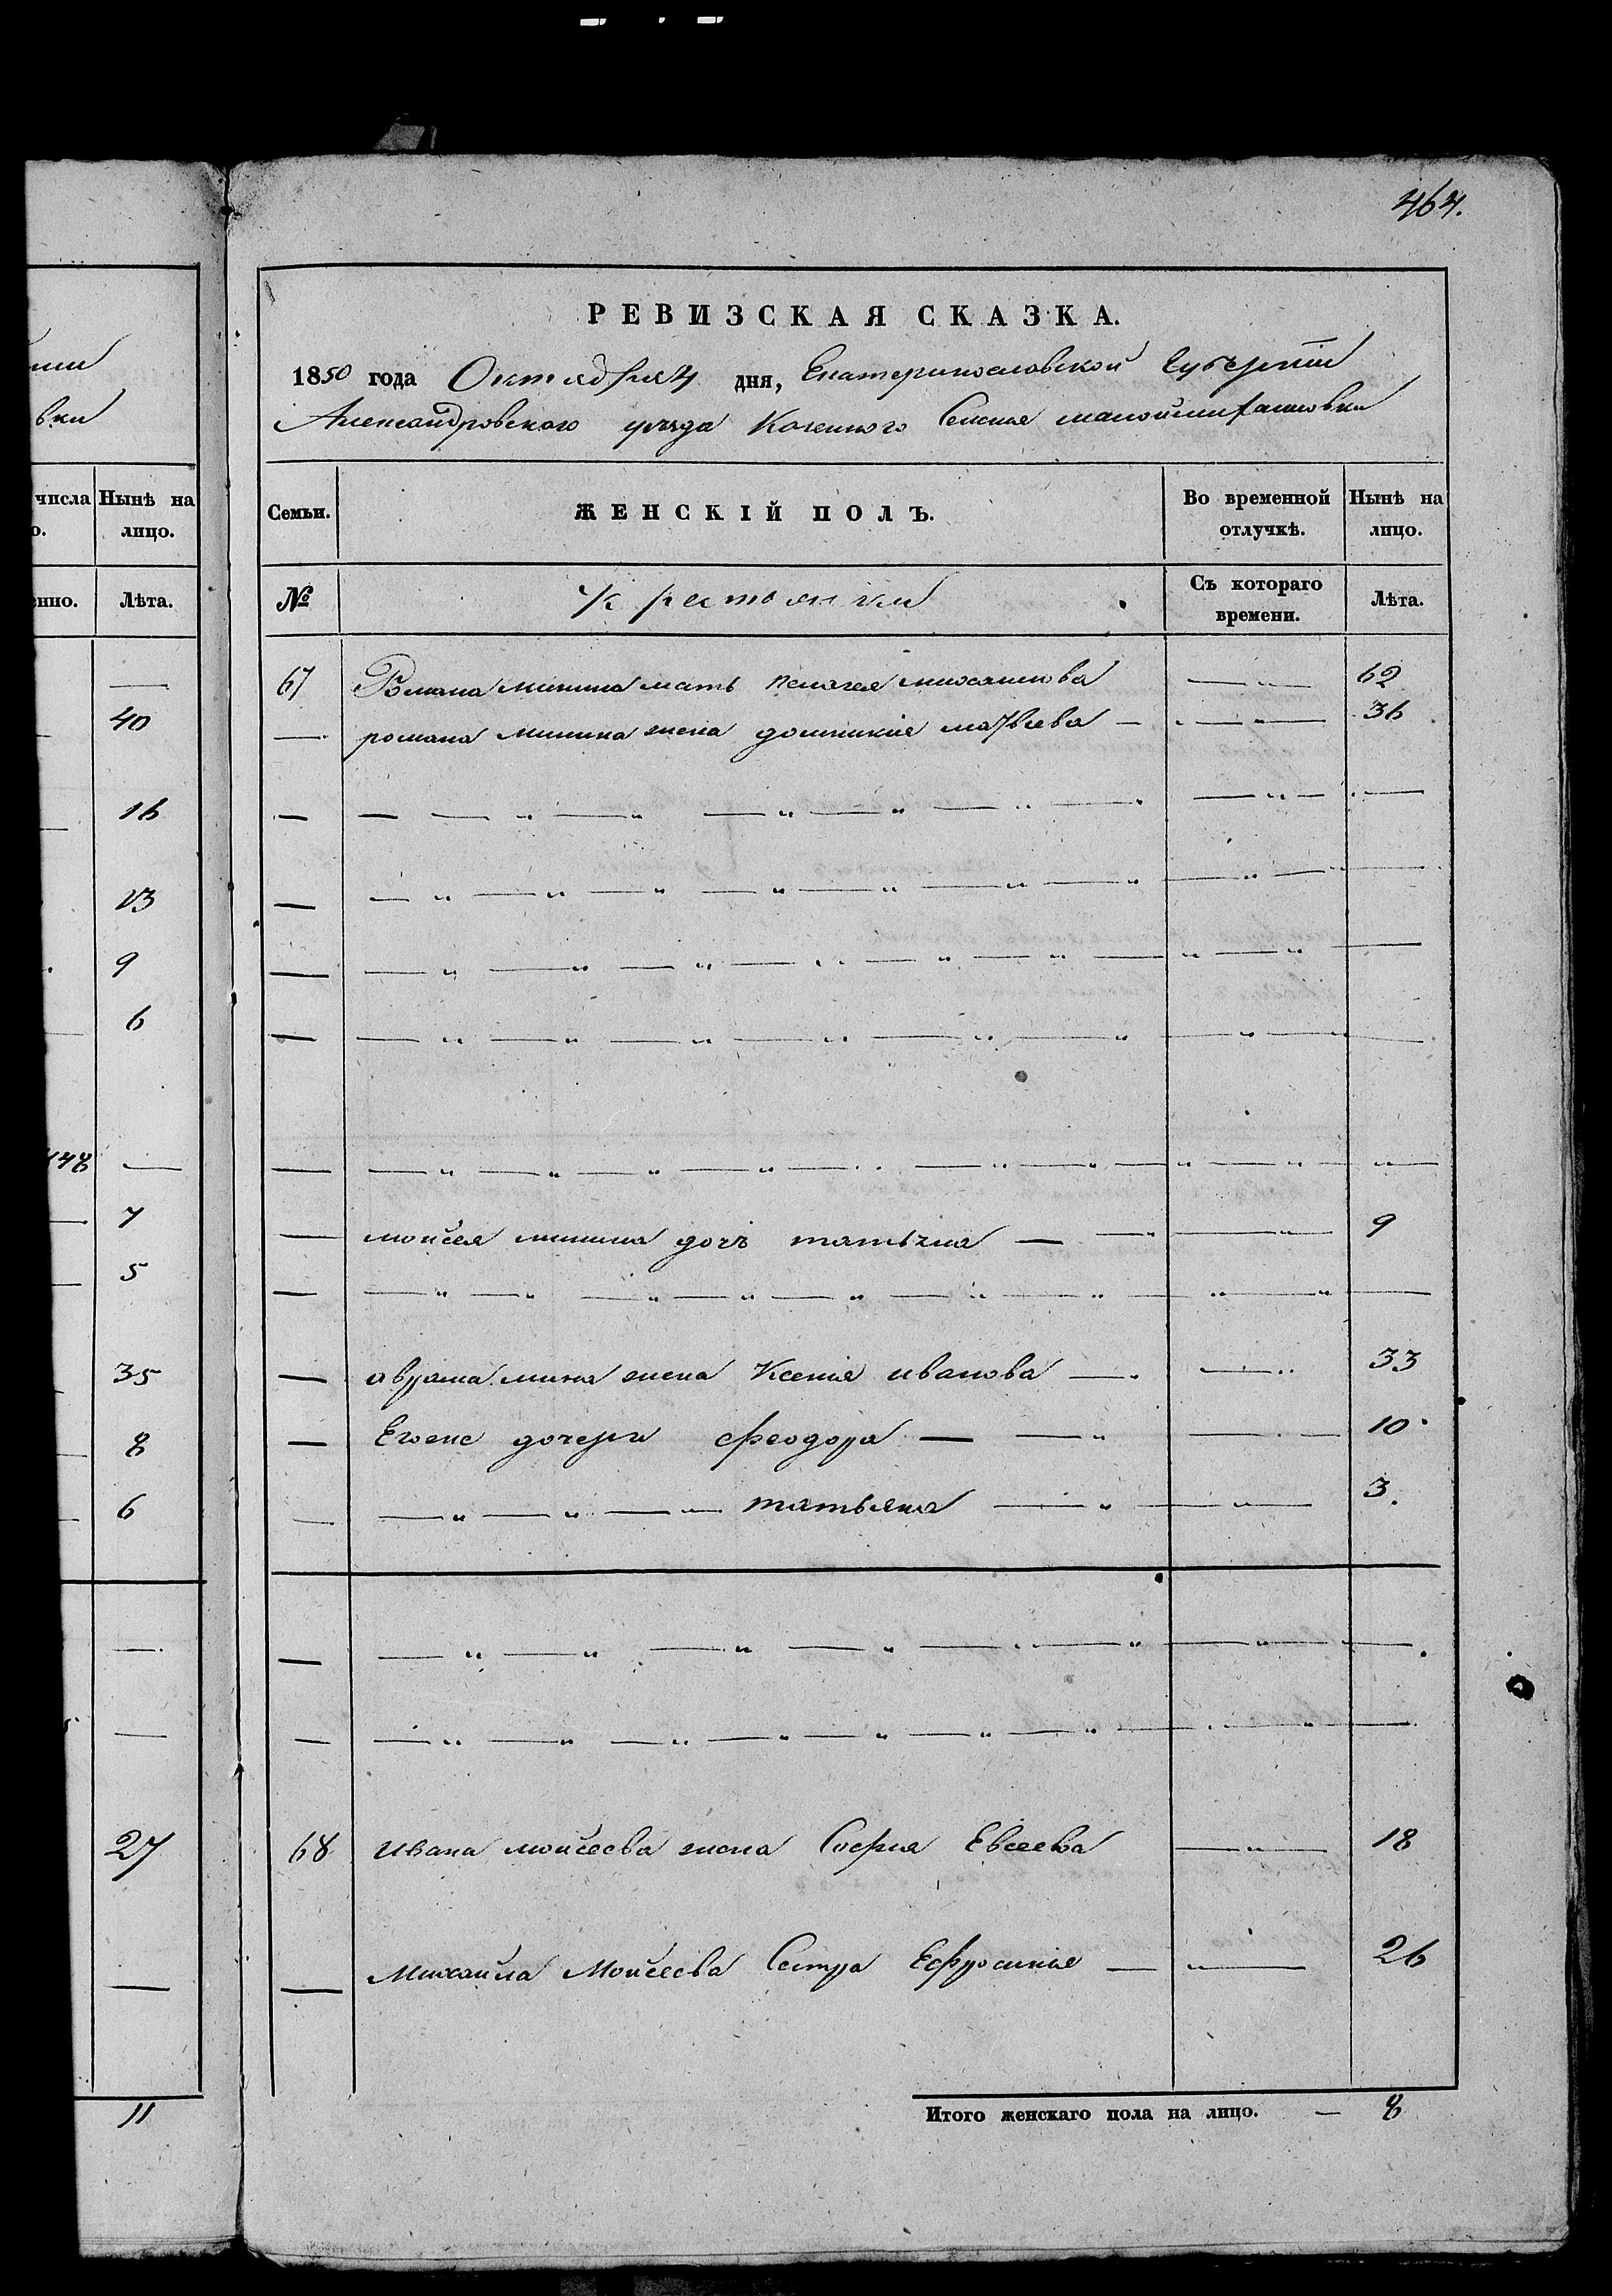 464.
РЕВИЗСКАЯ СКАЗКА.
1850 года Октября 4 дня, Екатеринославской Губернии
Александровского уезда Казенного Селения
вки
числа Нынѣ на
о. лицо.
Семьи. ЖЕНСКІЙ ПОЛЪ. Во временной отлучкѣ. Нынѣ на лицо.
енно. Лѣта.
№ Крестьянки Съ котораго времени. Лѣта.
67 Романа минина мать пелагея 62
40
— романа минина жена домникия матвеева — — „ — 36
16
13
9
6
148 —
7
— моисея минина дочь татьяна — — „ — „ 9
5
35
— аврама мина жена Ксения иванова — — 33
8
— Егоже дочери феодора — — „ — 10
6
— — „ — „ — „ — татьяна — „ — „ — 3.
27
68 ивана моисеева жена София Евсеева — „ — 18
— Михаила Моисеева Сестра Ефросиния — „ — 26
11
Итого женскаго пола на лицо. — 8